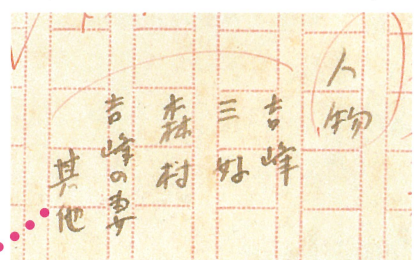 人物
吉峰
三好
森村
吉峰の妻
其他